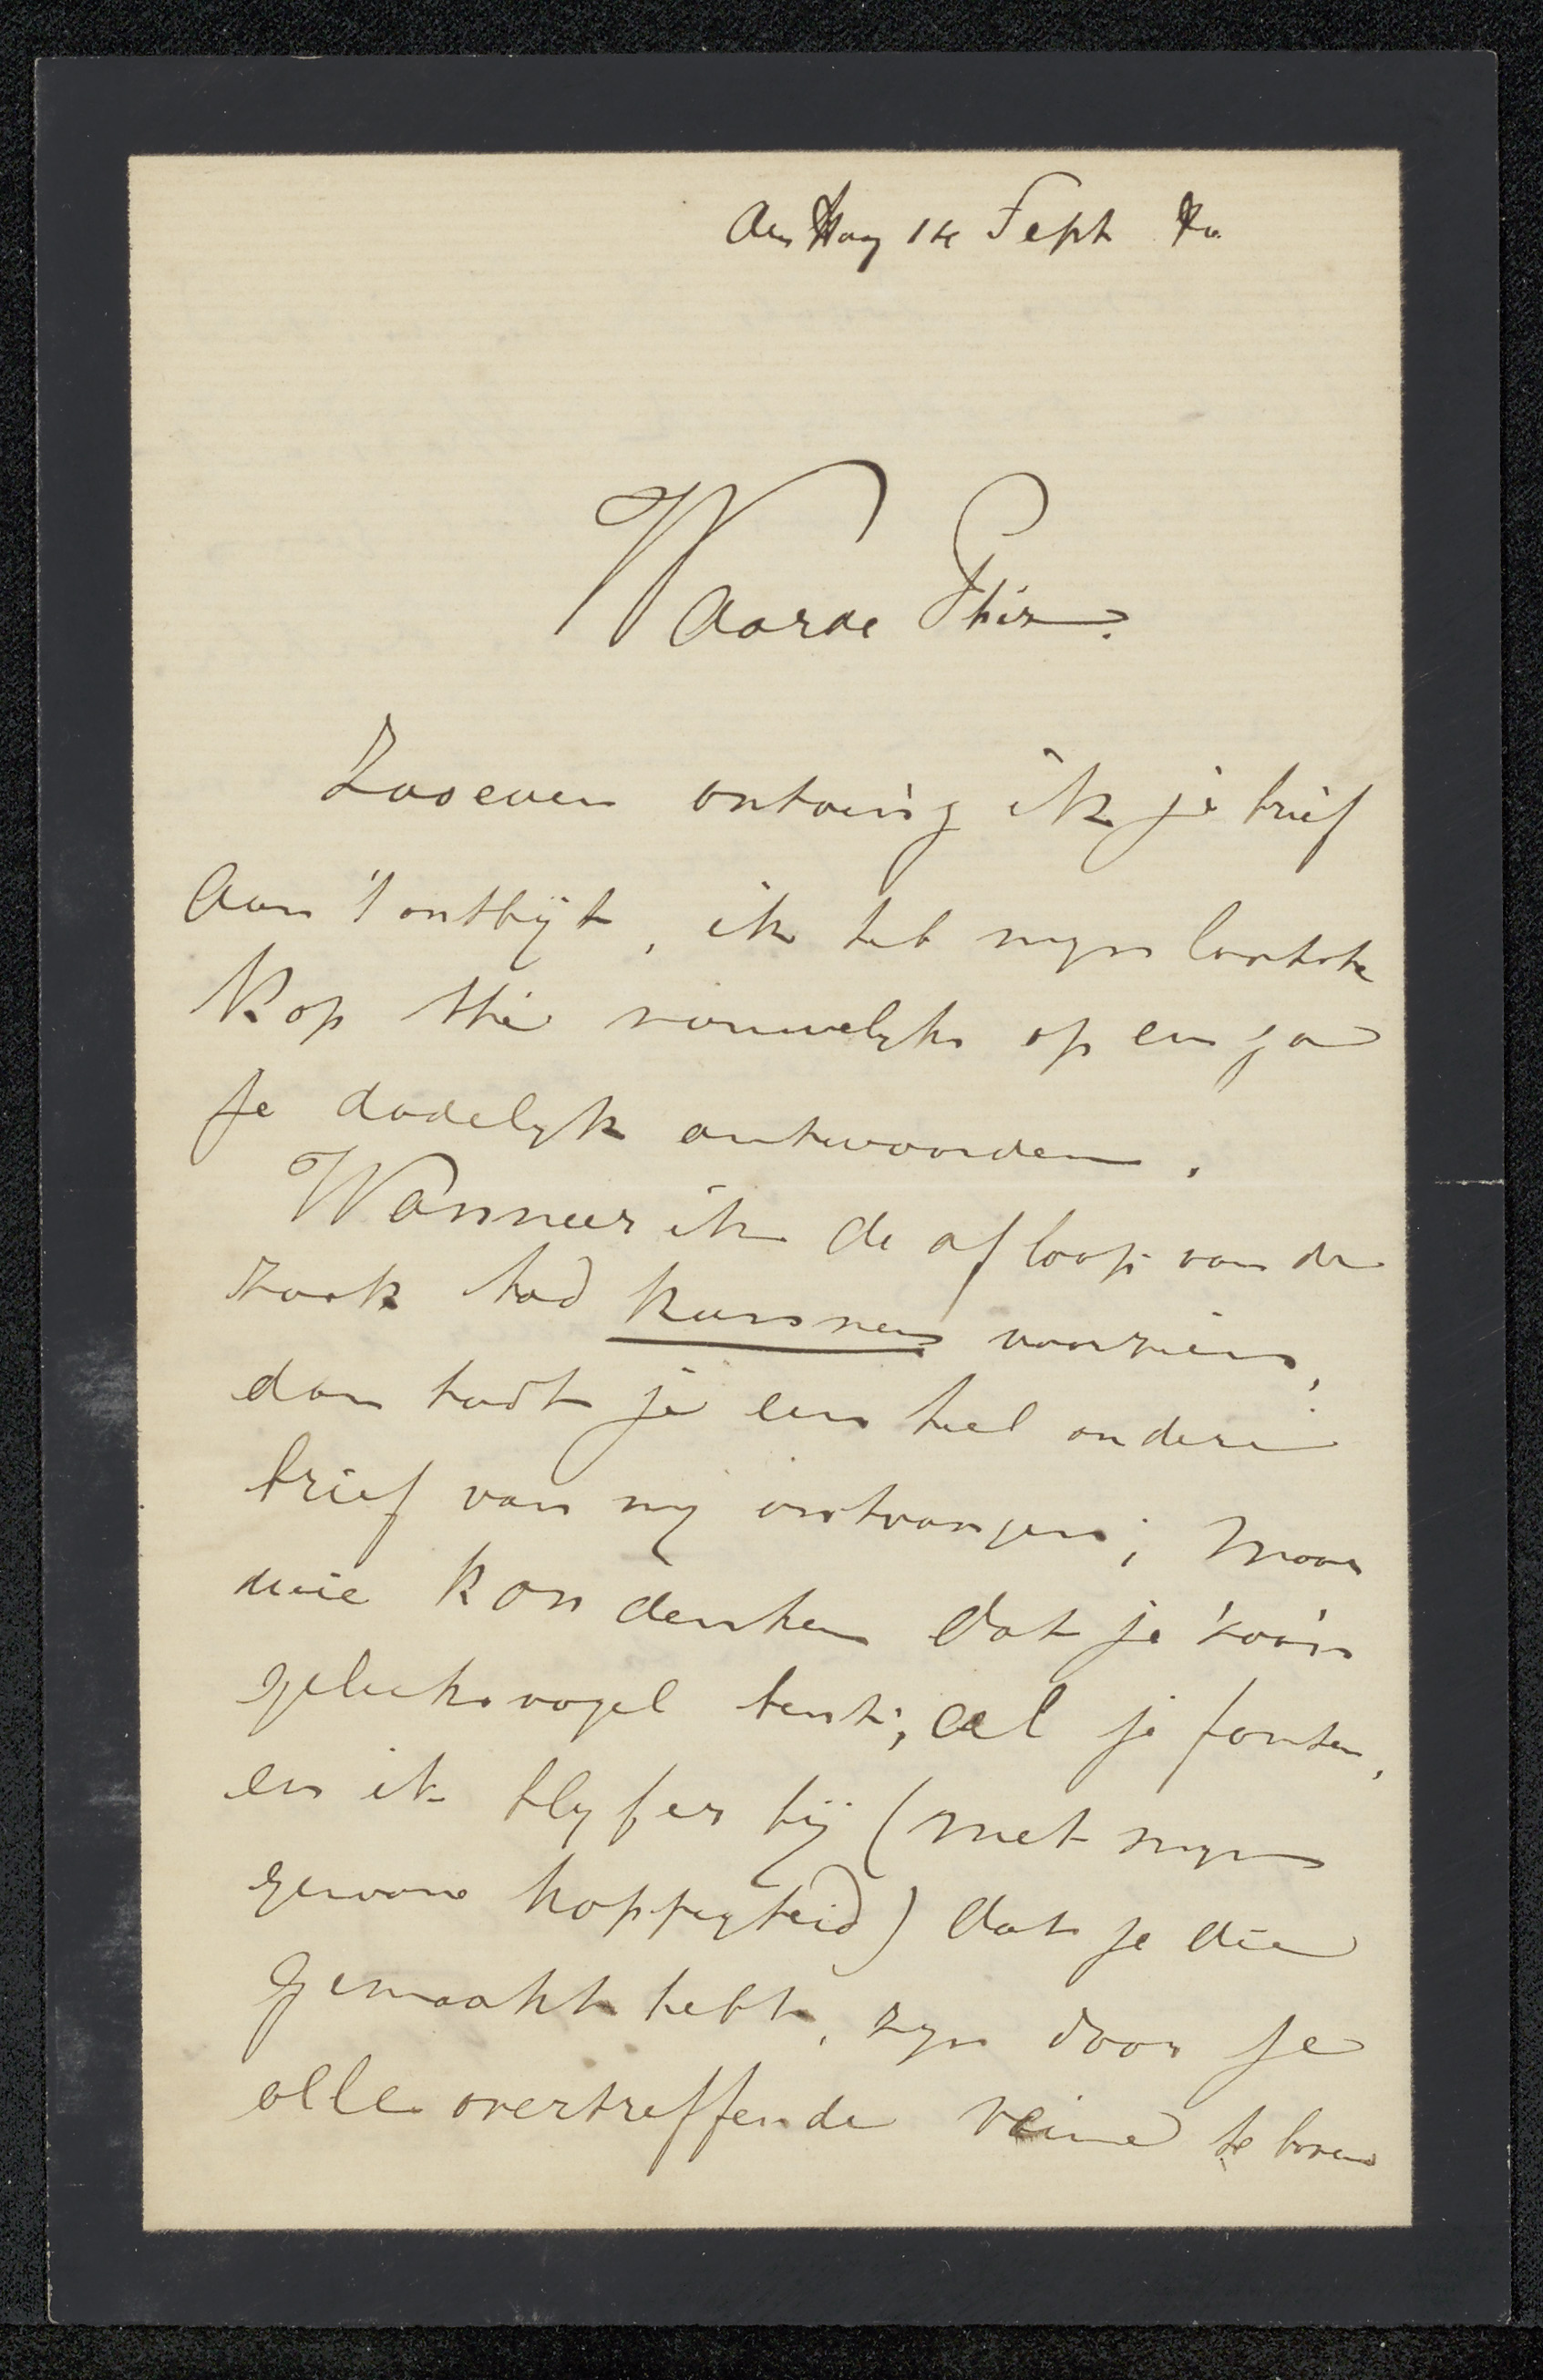 den Haag 14 Sept
Waarde Phis.
Zooeven ontving ik je brief
aan 't ontbijt, ik heb myn laatste
kop thé nouwelyks op en ga
je dadelyk antwoorden.
Wanneer ik de afloop van de
zaak had kunnen voorzien,
dan hadt je een heel andere
brief van my ontvangen; maar
wie kon denken dat je zoo'n
geluksvogel bent; al je fouten,
en ik blyf er bij (met myn
gewone koppigheid) dat je die
gemaakt hebt, zyn door je
alles overtreffende veine te boven